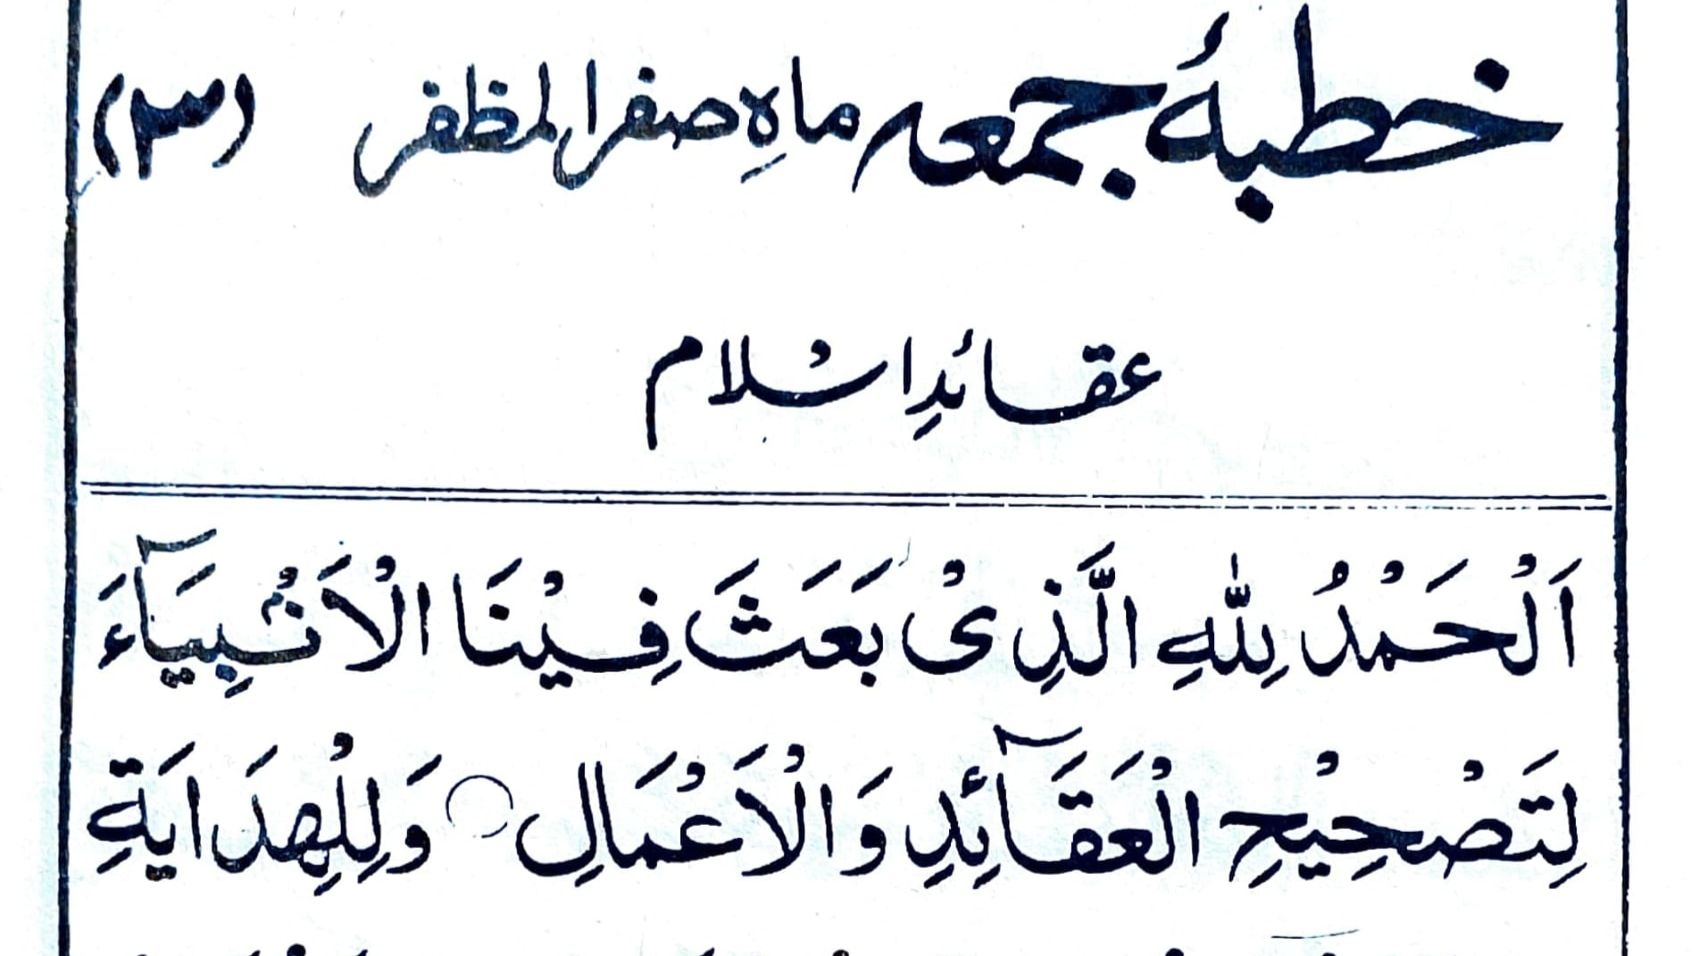 خطبۂ جمعہ ماہِ صفر المظفر (۳)
عقائدِ اسلام
اَلْحَمْدُ لِلّٰهِ الَّذِیْ بَعَثَ فِیْنَا الْاَنْۢبِیَآءَ
لِتَصْحِیْحِ الْعَقَآئِدِ وَالْاَعْمَالِ ○ وَلِلْهِدَایَةِ